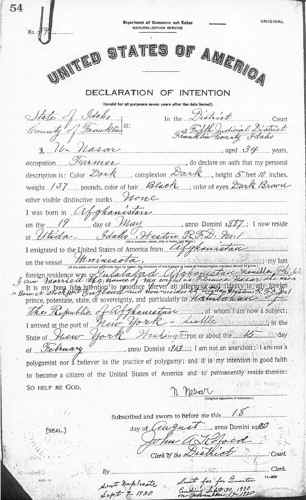 54
Department of Commerce and Labor
NATURALIZATION SERVICE
ORIGINAL
No.
UNITED STATES OF AMERICA
DECLARATION OF INTENTION
(Invalid for all purposes seven years after the date hereof)
State of Idaho
County of Franklin } ss:
In the District Court
of Fifth Judicial District
Franklin County Idaho
I, N. Nasor, aged 34 years,
occupation Farmer, do declare on oath that my personal
description is: Color Dark, complexion Dark, height 5 feet 10 inches,
weight 137 pounds, color of hair Black, color of eyes Dark Brown
other visible distinctive marks None
I was born in Afghanistan
on the 19 day of May, anno Domini; I now reside
at Idaho R.F.D. No. 1
I emigrated to the United States of America from Afghanistan
on the vessel Minnesota; my last
foreign residence was Afghanistan
I am married the name of my wife is
It is my bona fide intention to renounce forever all allegiance and fidelity to any foreign
prince, potentate, state, or sovereignty, and particularly to
the Republic of Afghanistan, of whom I am now a subject;
I arrived at the port of, in the
State of, on or about the 15 day
of February, anno Domini; I am not an anarchist; I am not a
polygamist nor a believer in the practice of polygamy; and it is my intention in good faith
to become a citizen of the United States of America and to permanently reside therein:
SO HELP ME GOD.
N. Nasor
Subscribed and sworn to before me this 18
[SEAL.] day of August, anno Domini
John A.
Clerk of the District Court.
By, Clerk.
Sent Duplicate
Sept 7, 1920